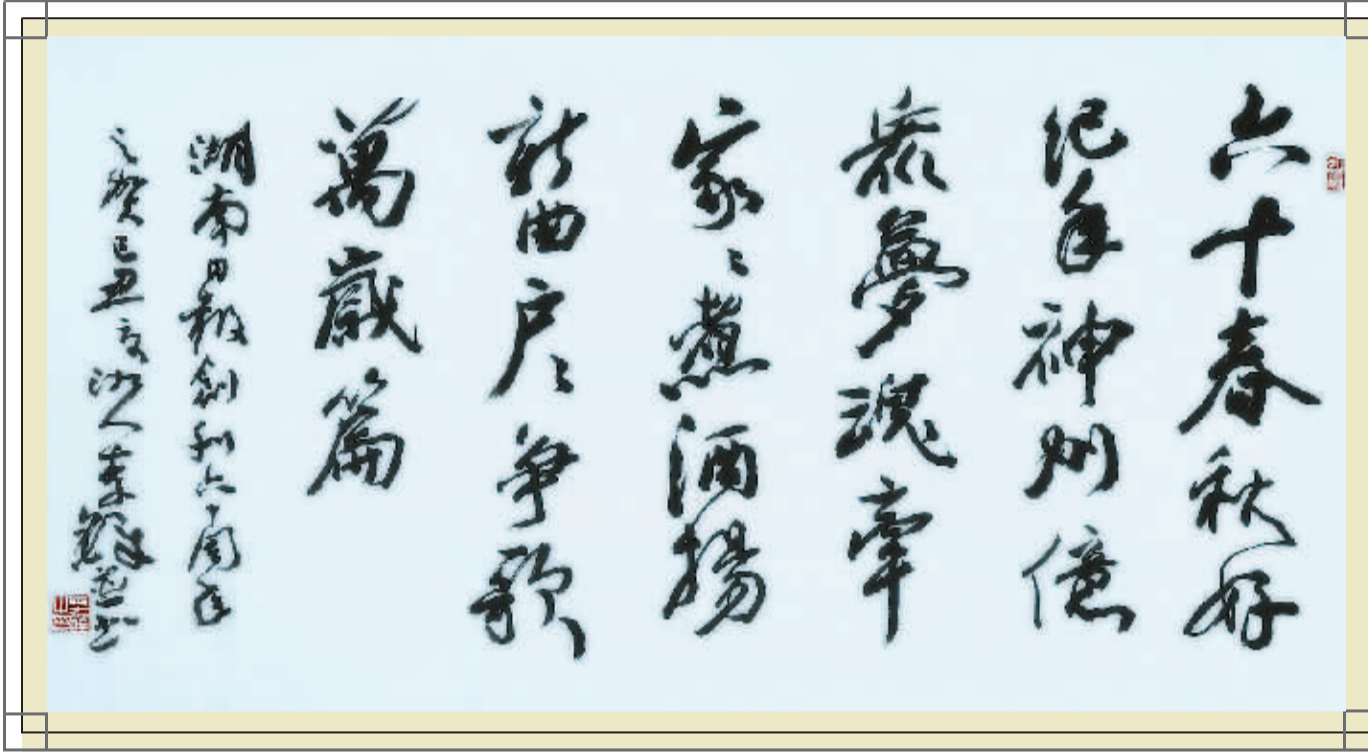 六十春秋好
纪年神州億
衆夢魂牽
家〻煮酒揚
新曲户〻争歌
萬歲篇
湖南日報創刊六十周年
之賀己丑夏湖人李